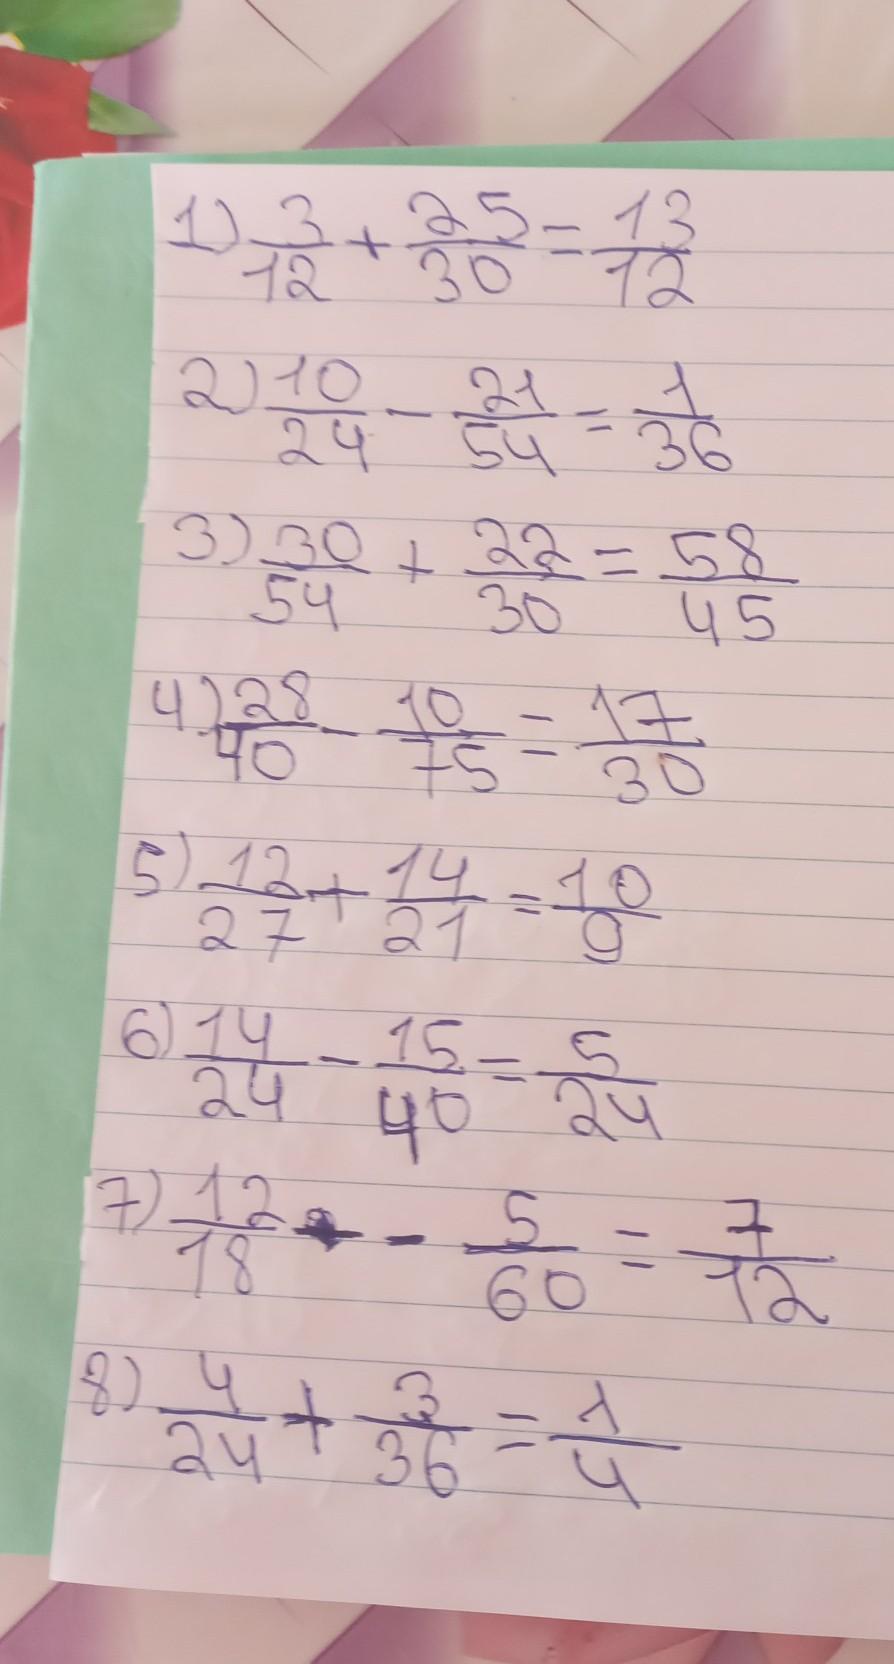 1) 3/12 + 25/30 = 13/12
2) 10/24 - 21/54 = 1/36
3) 30/54 + 22/30 = 58/45
4) 28/40 - 10/75 = 17/30
5) 12/27 + 14/21 = 10/9
6) 14/24 - 15/40 = 5/24
7) 12/18 - 5/60 = 7/12
8) 4/24 + 3/36 = 1/4